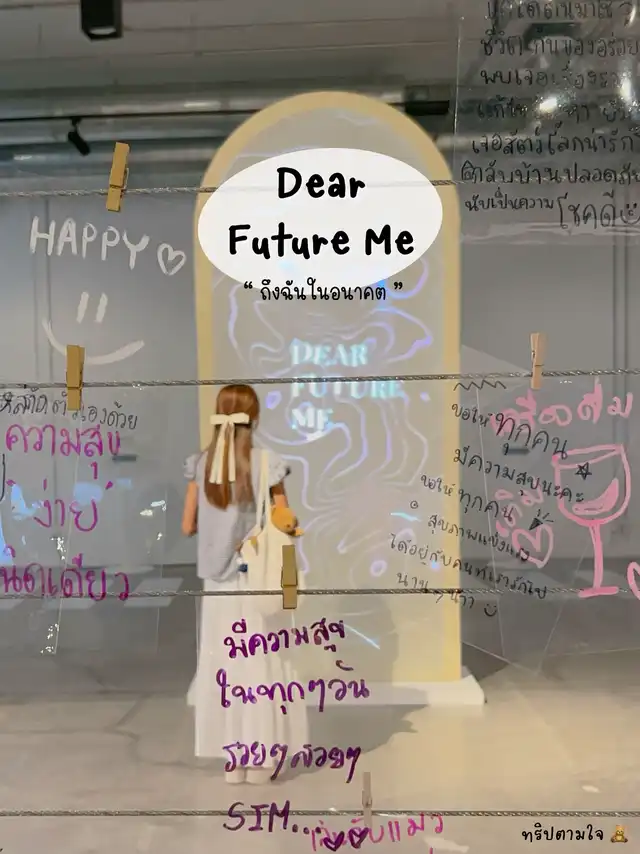 ชีวิต กินของอร่อย
พบเจอเรื่องราว
เจอสัตว์โลกน่ารัก
กลับบ้านปลอดภัย
นับเป็นความ โชคดี
Dear
Future Me
HAPPY
“ ถึงฉันในอนาคต ”
DEAR
FUTURE
ME
ตัวเองด้วย
ความสุข
ง่าย
นิดเดียว
ขอให้ ทุกคน
มีความสุขนะคะ
ขอให้ ทุกคน
สุขภาพแข็งแรง
ได้อยู่กับคนที่เรารักไป
นาน ๆ น้า
มีความสุข
ในทุกๆวัน
รวยๆสวยๆ
SIM...
ทริปตามใจ